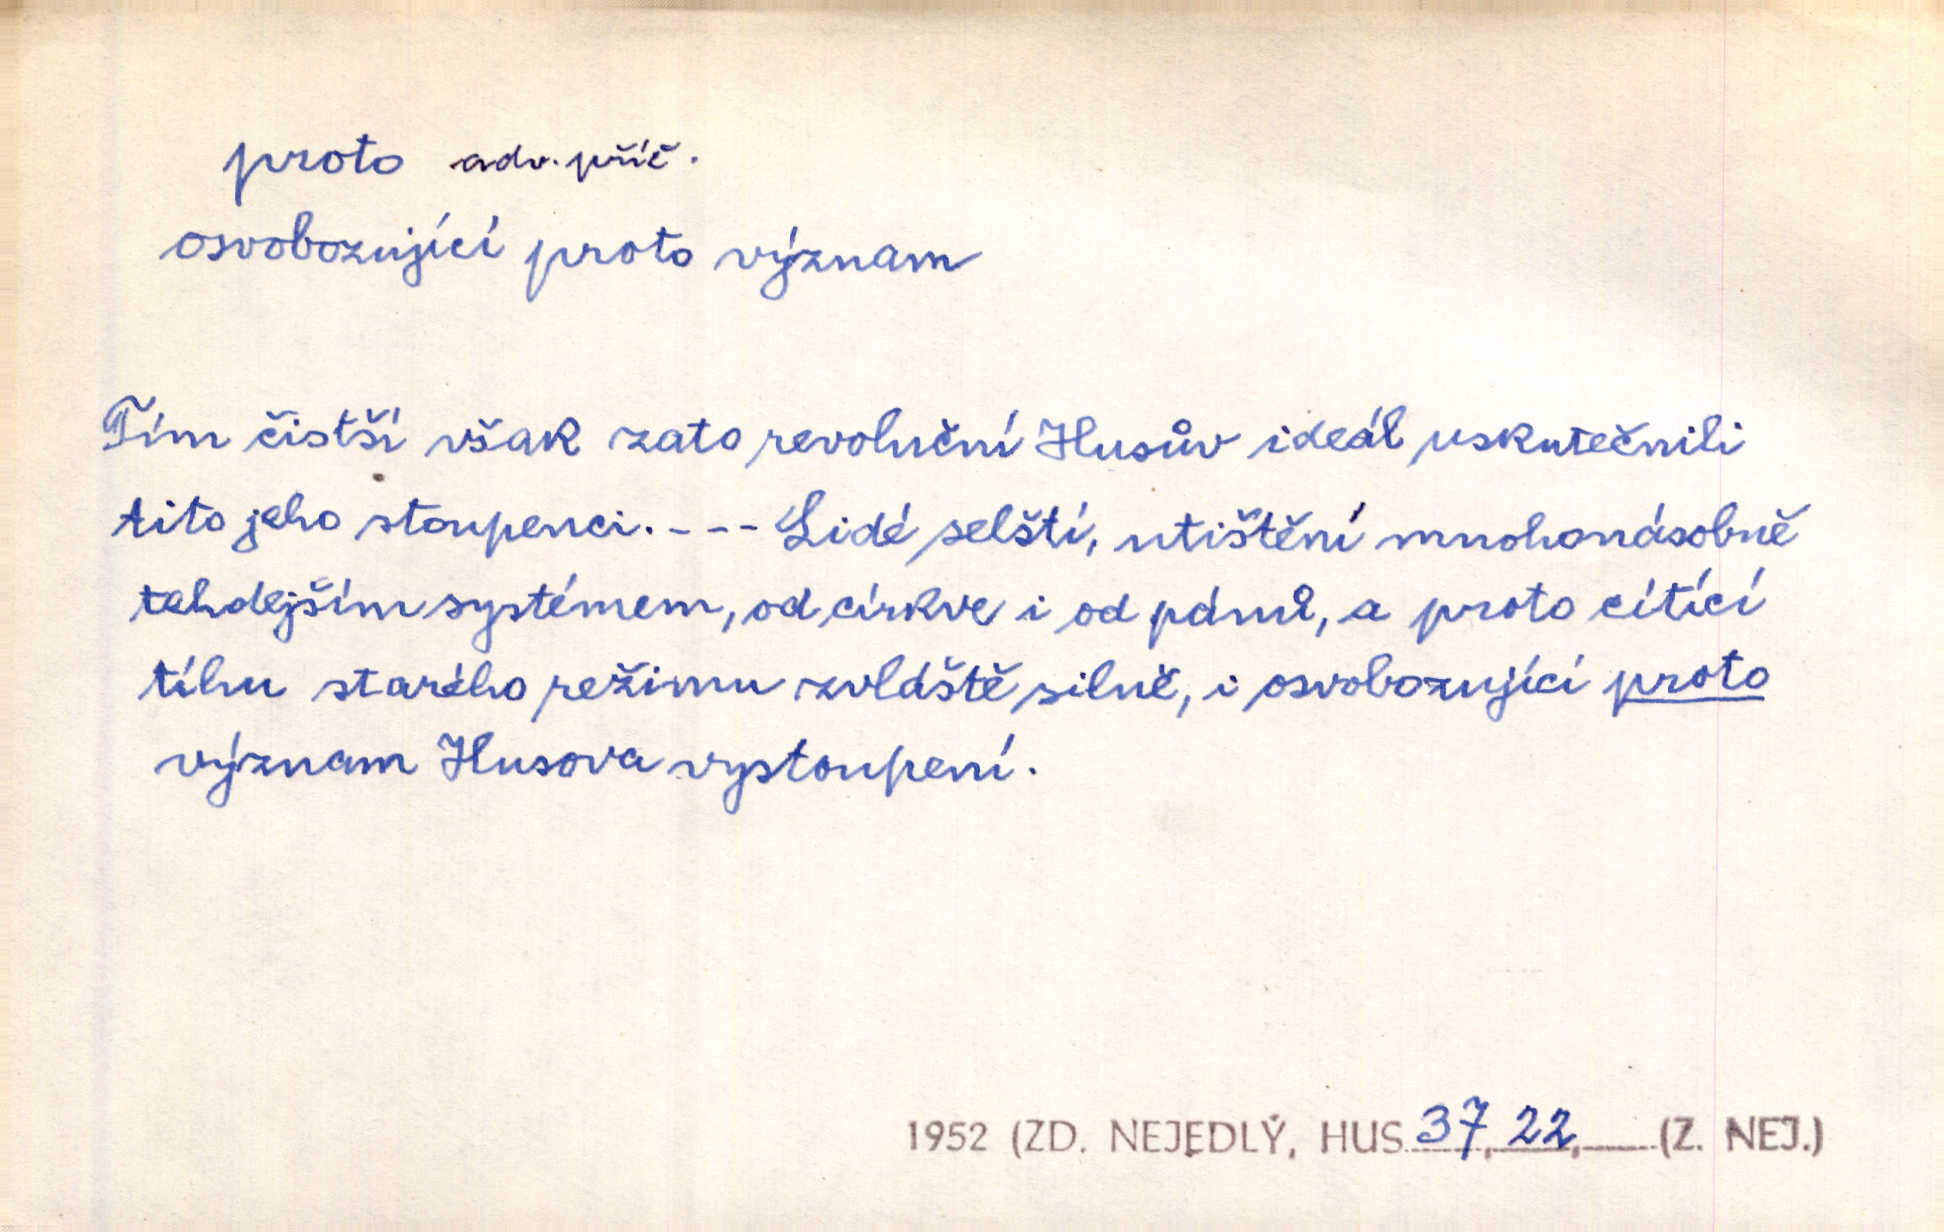 proto adv. příč.
osvobozující proto význam
Tím čistší však zato revoluční Husův ideál uskutečnili
tito jeho stoupenci. - - - Lidé selští, utištění mnohonásobně
tehdejším systémem, od církve i od pánů, a proto cítící
tíhu starého režimu zvláště silně, i osvobozující proto
význam Husova vystoupení.
1952 (ZD. NEJEDLÝ, HUS 37, 22, (Z. NEJ.)